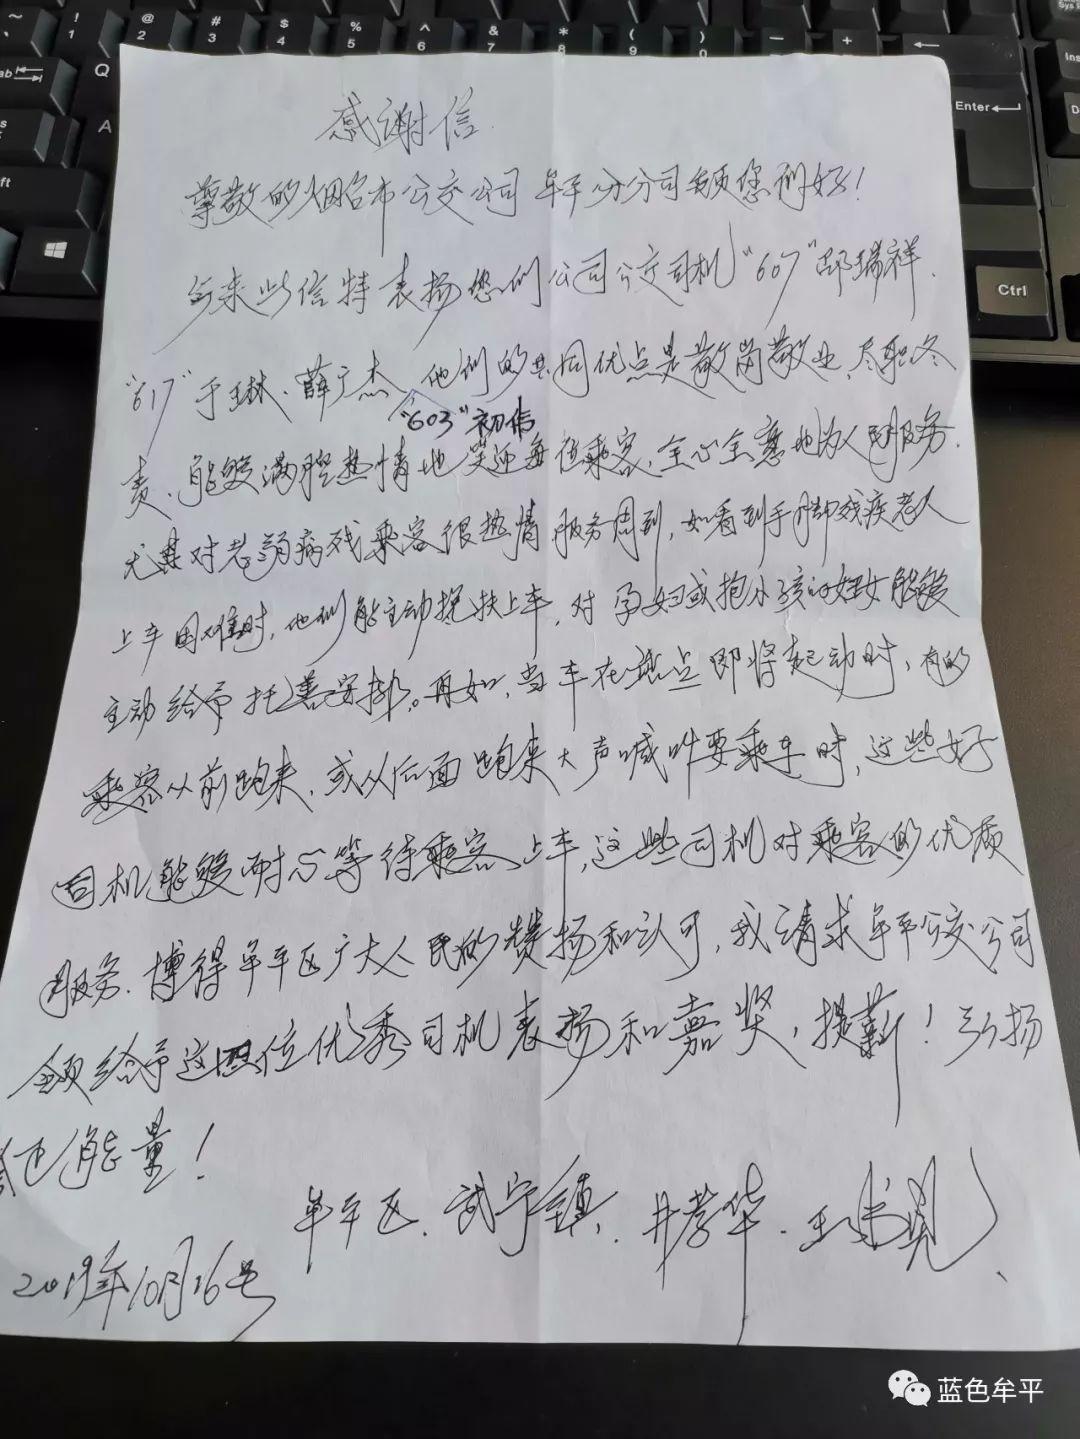 感谢信
尊敬的烟台市公交公司牟平分公司领您们好！
今来此信特表扬您们公司公交司机“607”邵瑞祥、
“617”于琳、薛广杰、他们的共同优点是敬岗敬业、尽职尽
“603”初信
责、能够满腔热情地笑迎每位乘客、全心全意地为人民服务.
尤其对老弱病残乘客很热情服务周到，如看到手脚残疾老人
上车困难时，他们能主动搀扶上车，对孕妇或抱小孩的妇女能够
主动给予托善安排。再如，当车在站点即将起动时，有的
乘客从前跑来、或从后面跑来大声喊叫要乘车时，这些好
司机能够耐心等待乘客上车，这些司机对乘客的优质
服务、博得牟平区广大人民的赞扬和认可，我请求牟平公交公司
领给予这四位优秀司机表扬和嘉奖，提薪！弘扬
正能量！
牟平区、武宁镇、井孝华、王
2019年10月16号
~
!
1
@
2
#
3
$
4
%
5
^
6
&
7
*
8
(
9
)
0
Q
A
Enter
Ctrl
蓝色牟平